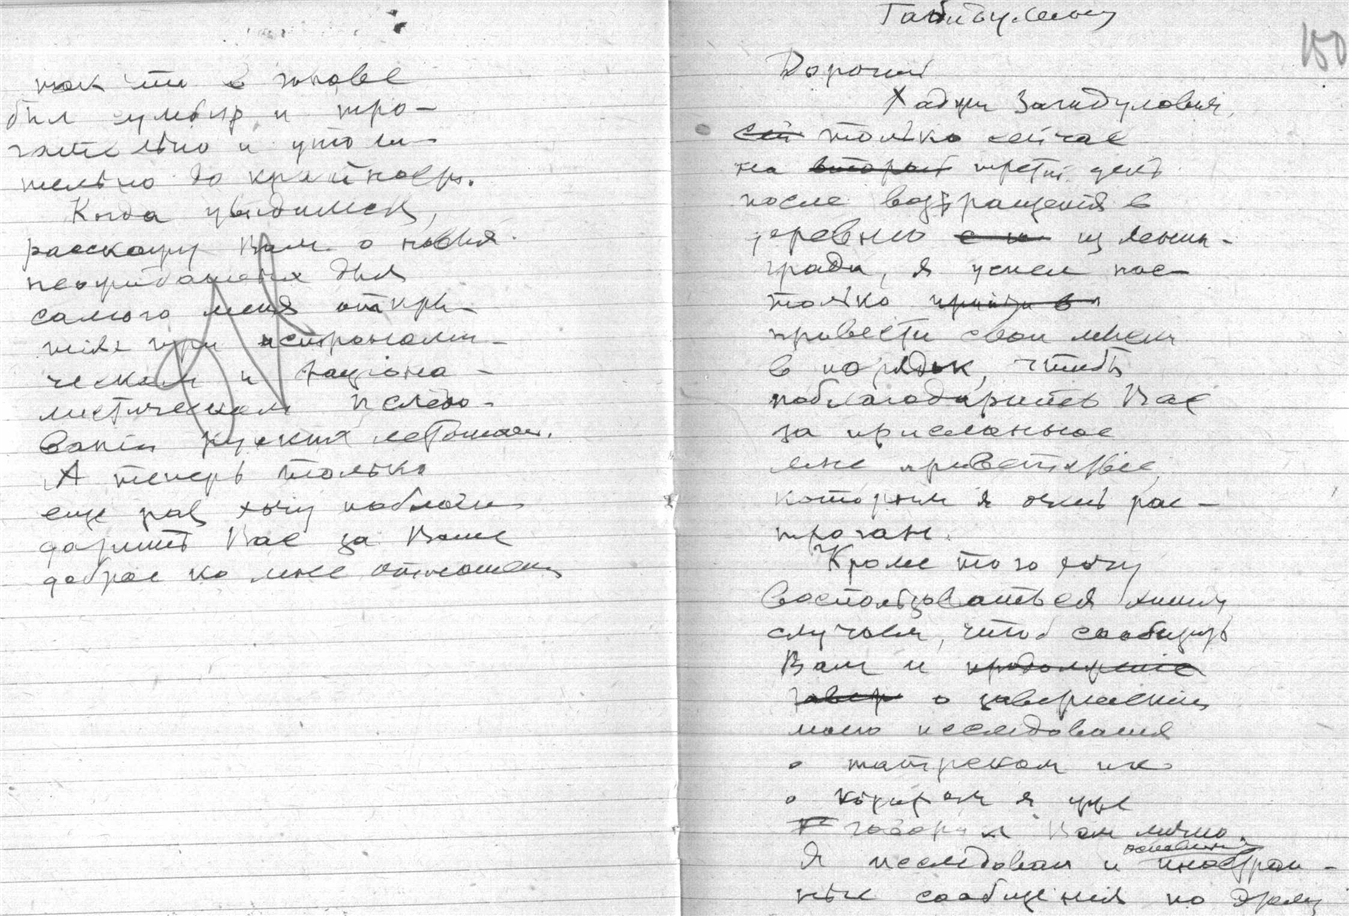 так что в голове
был сумбур и тро-
гательно и утоми-
тельно до крайности.
Когда увидимся,
расскажу Вам о новых
неожиданных для
самого меня откры-
тиях при астрономи-
ческом и
листическом исследо-
вании русских летописей.
А теперь только
еще раз хочу поблаго
дарить Вас за Ваше
доброе ко мне отношение
150
Дорогой
Хаджи Загидулович,
только сейчас
на второй третий день
после возвращения в
деревню из Ленин-
града, я успел нас-
только
привести свои мысли
в порядок, чтобы
поблагодарить Вас
за присланное
мне приветствие,
которым я очень рас-
троган.
Кроме того хочу
воспользоваться этим
случаем, чтоб сообщить
Вам и продолжение
завер о завершении
моего исследования
о татарском иге
о котором я уже
говорил Вам лично.
Я исследовал и основные иностран-
ные сообщения по этому